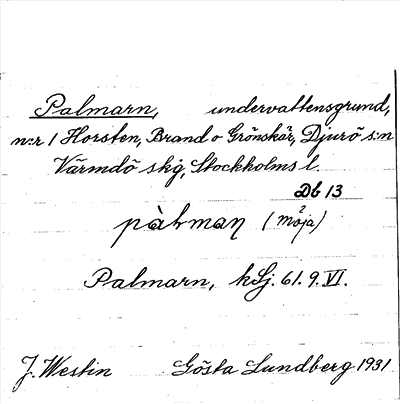 Palmarn, undervattensgrund,
n:r / Horsten, Brand o Grönskär, Djurö s:n
Värmdö skg, Stockholms l.
Db 13
pàlman (möja)
2
Palmarn, kSj. 61. 9. VI.
J. Westin Gösta Lundberg 1931